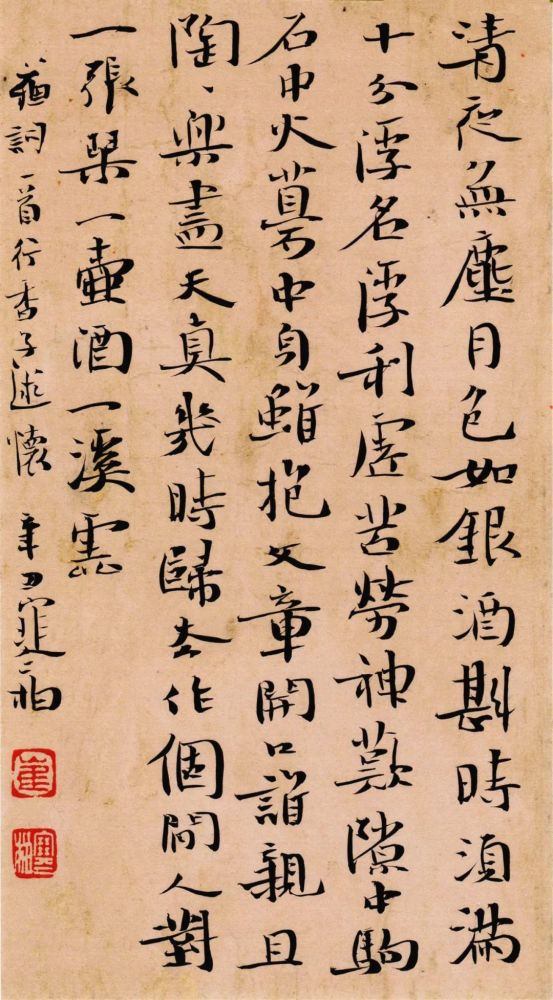 清夜無塵月色如銀酒斟時須滿
十分浮名浮利虛苦勞神歎隙中駒
石中火夢中身雖抱文章開口誰親且
陶〻樂盡天真幾時歸去作個閒人對
一張琴一壺酒一溪雲
蘇詞一首行香子述懷 辛丑寒柏
崔
寒柏